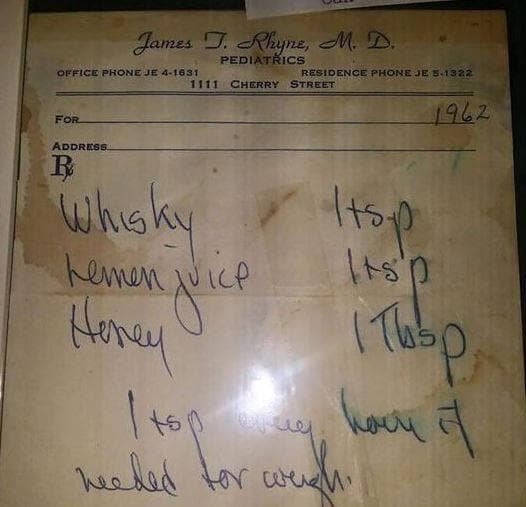 James T. Rhyne, M. D.
PEDIATRICS
OFFICE PHONE JE 4-1631 RESIDENCE PHONE JE 5-1322
1111 CHERRY STREET
FOR 1962
ADDRESS
℞
Whisky 1 tsp
Lemon juice 1 tsp
Honey 1 Tbsp
1 tsp every hour if
needed for cough.